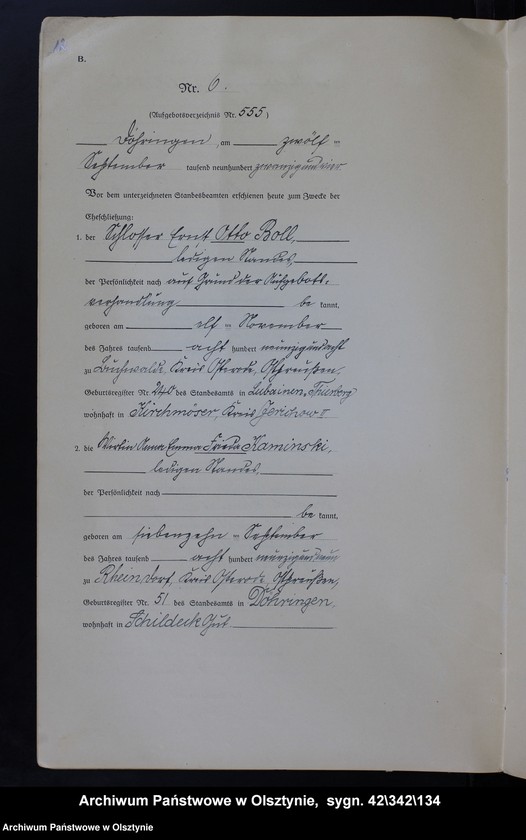 B.
Nr. 6.
(Aufgebotsverzeichnis Nr. 555)
Döhringen, am zwölf ten
September tausend neunhundert zwanzig und vier
Vor dem unterzeichneten Standesbeamten erschienen heute zum Zwecke der
Eheschließung:
1. der Schlosser Ernst Otto Boll,
ledigen Standes,
der Persönlichkeit nach auf Grund der Aufgebots-
verhandlung be kannt,
geboren am elf ten November
des Jahres tausend acht hundert neunzig und acht
zu Buchwalde, Kreis Osterode, Ostpreußen.
Geburtsregister Nr. des Standesamts in Lubainen, Thierberg
wohnhaft in Kirchmöser, Kreis Jerichow II
2. die Wirtin Anna Emma Frieda Kaminski,
ledigen Standes,
der Persönlichkeit nach
be kannt,
geboren am siebenzehn ten September
des Jahres tausend acht hundert neunzig und neun
zu Rheinsdorf, Kreis Osterode, Ostpreußen,
Geburtsregister Nr. 51 des Standesamts in Döhringen,
wohnhaft in Schildeck Gut
Archiwum Państwowe w Olsztynie, sygn. 42\342\134
Archiwum Państwowe w Olsztynie